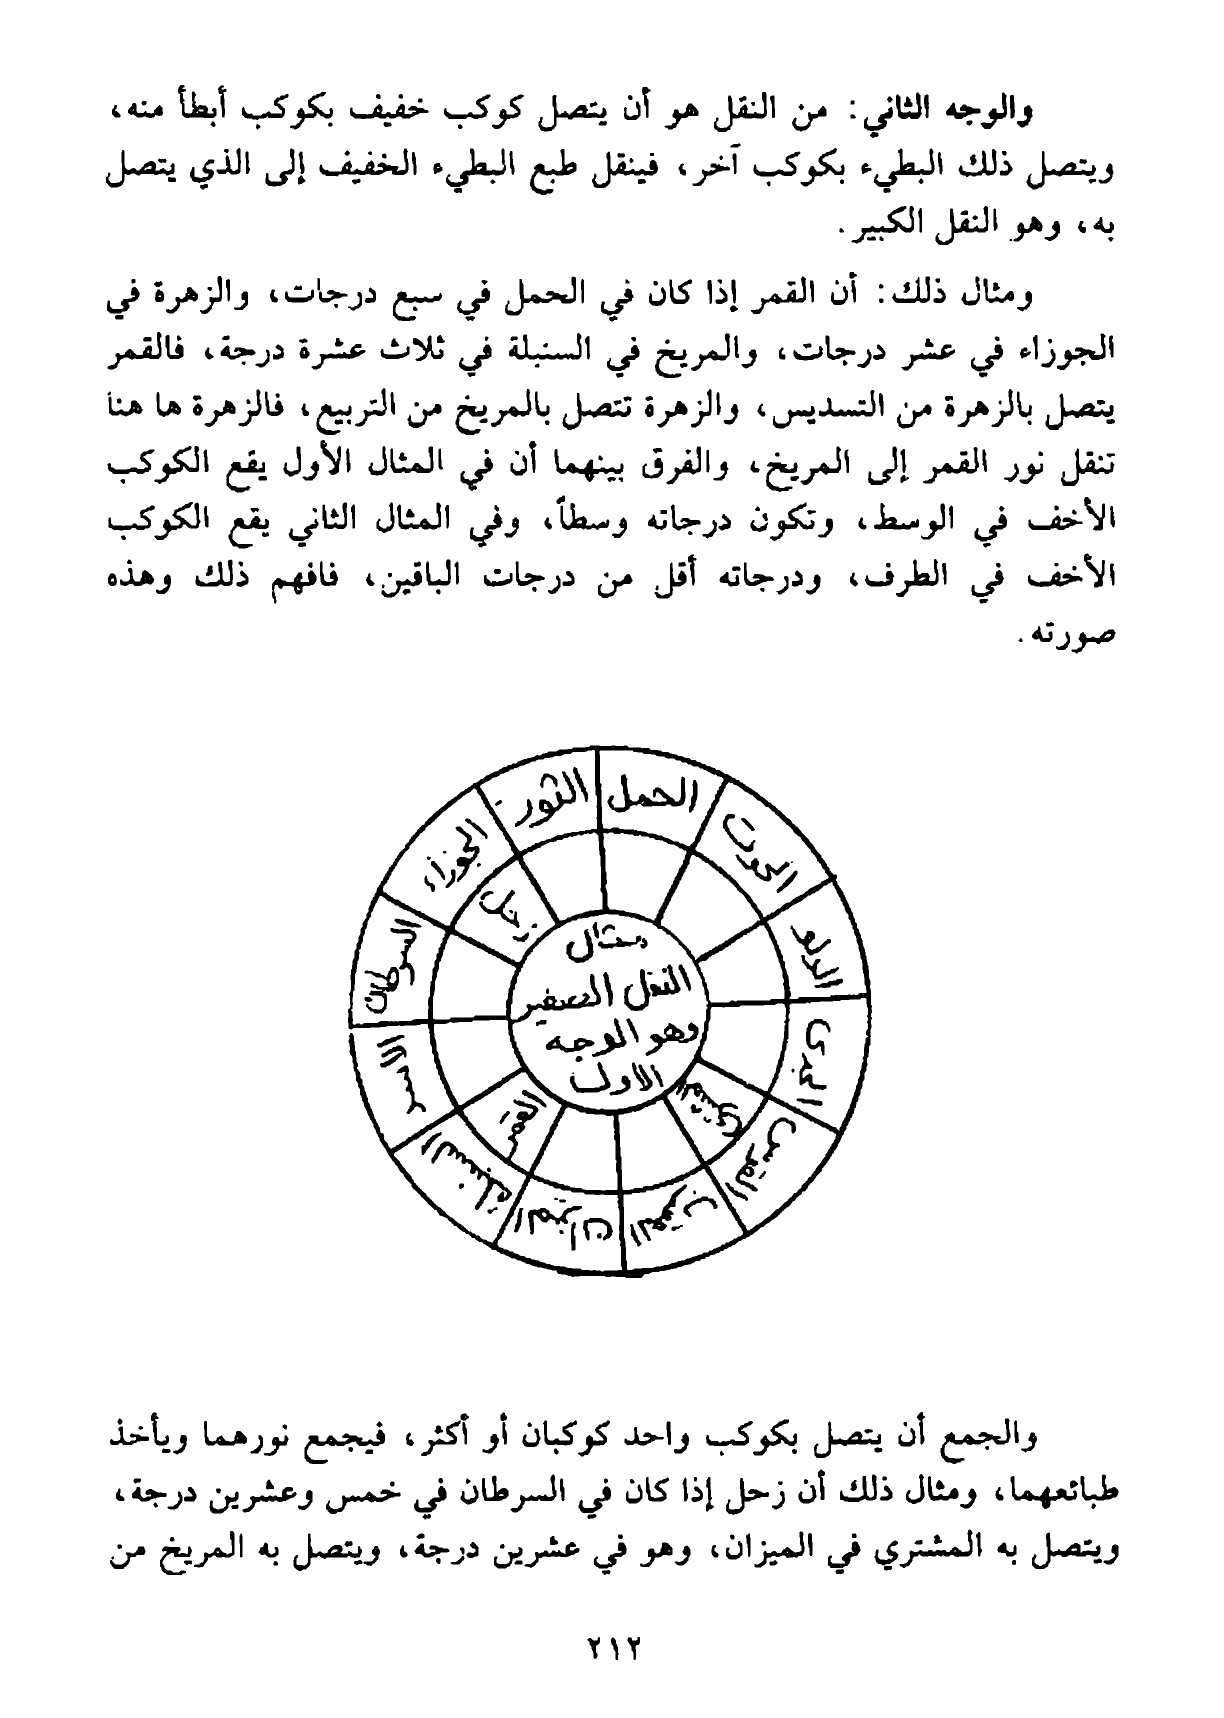 والوجه الثاني: من النقل هو أن يتصل كوكب خفيف بكوكب أبطأ منه،
ويتصل ذلك البطيء بكوكب آخر، فينقل طبع البطيء الخفيف إلى الذي يتصل
به، وهو النقل الكبير.
ومثال ذلك: أن القمر إذا كان في الحمل في سبع درجات، والزهرة في
الجوزاء في عشر درجات، والمريخ في السنبلة في ثلاث عشرة درجة، فالقمر
يتصل بالزهرة من التسديس، والزهرة تتصل بالمريخ من التربيع، فالزهرة ها هنا
تنقل نور القمر إلى المريخ، والفرق بينهما أن في المثال الأول يقع الكوكب
الأخف في الوسط، وتكون درجاته وسطاً، وفي المثال الثاني يقع الكوكب
الأخف في الطرف، ودرجاته أقل من درجات الباقين، فافهم ذلك وهذه
صورته.
الحمل
الثور
الجوزاء
السرطان
الاسد
السنبلة
الميزان
العقرب
القوس
الجدى
الدلو
الحوت
زحل
القمر
المشترى
مثال
النقل الصغير
وهو الوجه
الأول
والجمع أن يتصل بكوكب واحد كوكبان أو أكثر، فيجمع نورهما ويأخذ
طبائعهما، ومثال ذلك أن زحل إذا كان في السرطان في خمس وعشرين درجة،
ويتصل به المشتري في الميزان، وهو في عشرين درجة، ويتصل به المريخ من
٢١٢